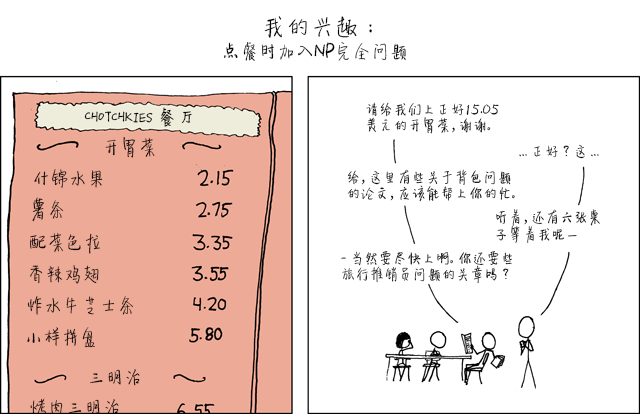 我的兴趣：
点餐时加入NP完全问题
CHOTCHKIES 餐厅
开胃菜
什锦水果 2.15
薯条 2.75
配菜色拉 3.35
香辣鸡翅 3.55
炸水牛芝士条 4.20
小样拼盘 5.80
三明治
烤肉三明治 6.55
请给我们上正好15.05
美元的开胃菜，谢谢。
... 正好？这 ...
给，这里有些关于背包问题
的论文，应该能帮上你的忙。
听着，还有六张桌
子等着我呢 —
- 当然要尽快上啊。你还要些
旅行推销员问题的文章吗？